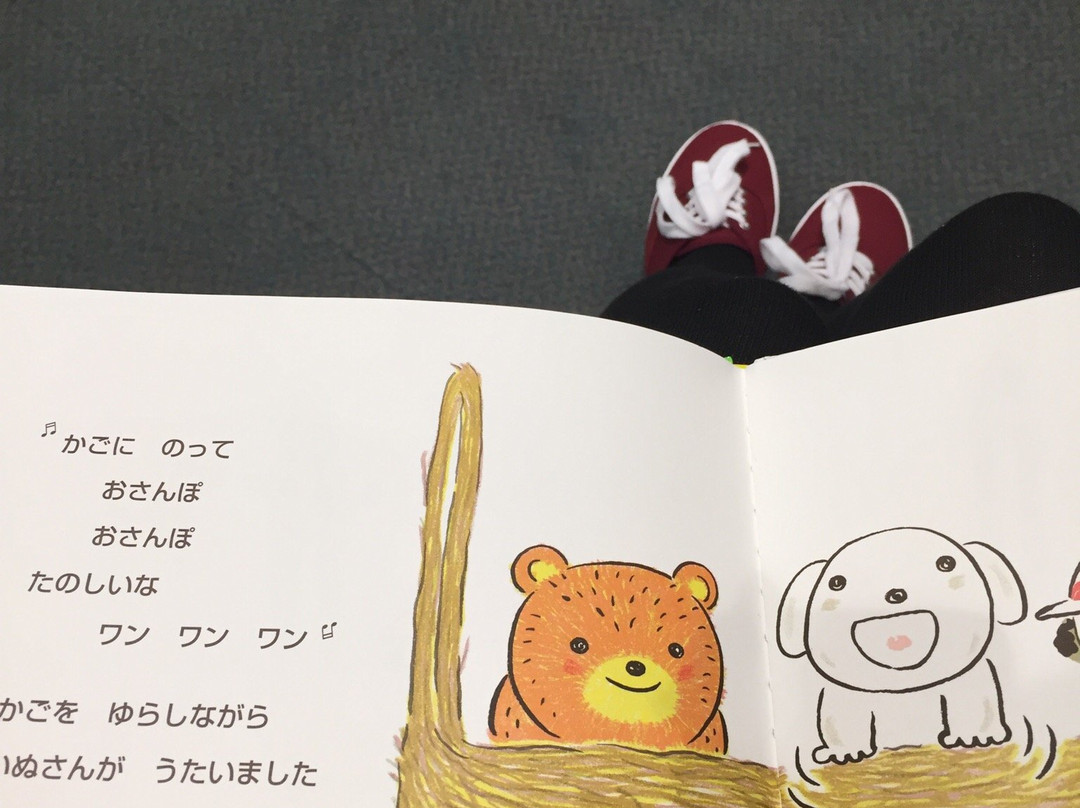 ♬かごに　のって
おさんぽ
おさんぽ
たのしいな
ワン　ワン　ワン♬
かごを　ゆらしながら
いぬさんが　うたいました